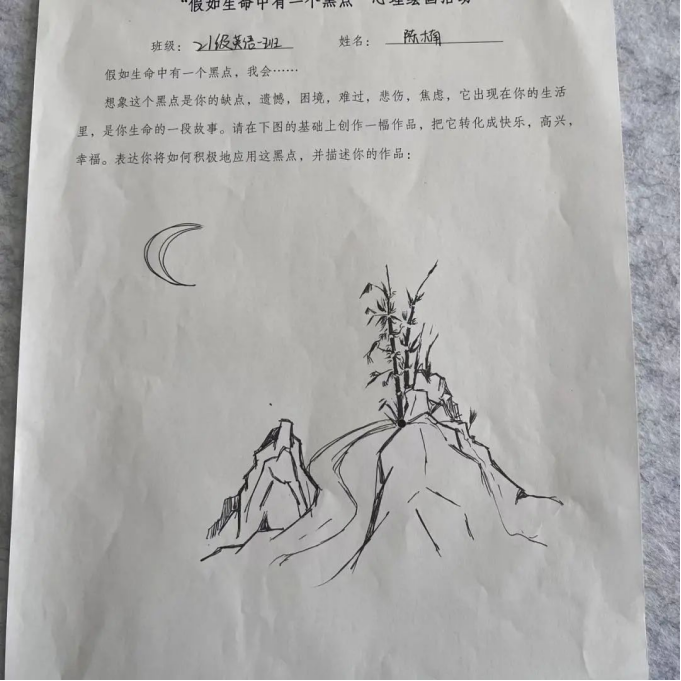 “假如生命中有一个黑点”心理绘画活动
班级：21级英语一班 姓名：陈楠
假如生命中有一个黑点，我会……
想象这个黑点是你的缺点，遗憾，困境，难过，悲伤，焦虑，它出现在你的生活
里，是你生命的一段故事。请在下图的基础上创作一幅作品，把它转化成快乐，高兴，
幸福。表达你将如何积极地应用这黑点，并描述你的作品：